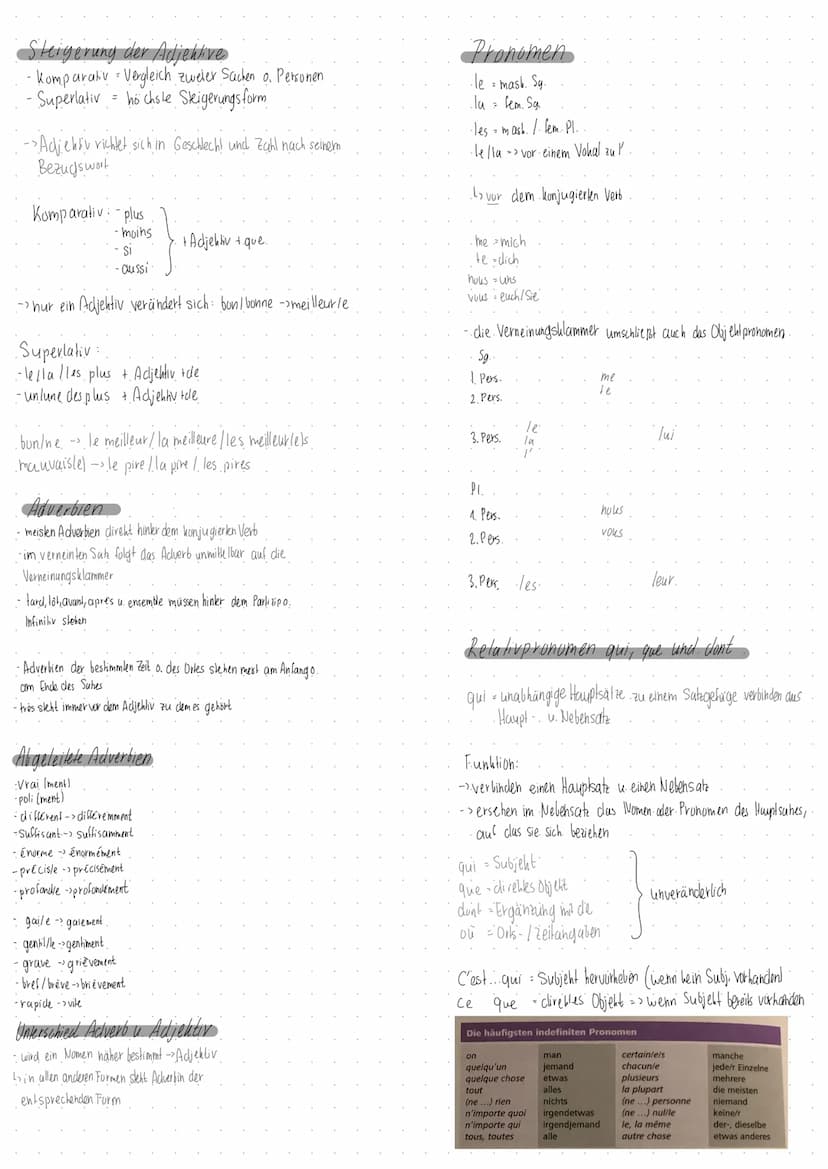 Steigerung der Adjektive
- Komparativ = Vergleich zweier Sachen o. Personen
- Superlativ = höchste Steigerungsform
-> Adjektiv richtet sich in Geschlecht und Zahl nach seinem
Bezugswort
Komparativ: - plus
- moins
- si
- aussi
+ Adjektiv + que
-> nur ein Adjektiv verändert sich: bon/bonne -> meilleur/e
Superlativ:
- le/la/les plus + Adjektiv + de
- un/une des plus + Adjektiv + de
bon/ne -> le meilleur/la meilleure/les meilleur(e)s
mauvais(e) -> le pire/la pire/les pires
Adverbien
- meisten Adverbien direkt hinter dem konjugierten Verb
- im verneinten Satz folgt das Adverb unmittelbar auf die
Verneinungsklammer
- tard, tôt, avant, après u. ensemble müssen hinter dem Partizip o.
Infinitiv stehen
- Adverbien der bestimmten Zeit o. des Ortes stehen meist am Anfang o.
am Ende des Satzes
- très steht immer vor dem Adjektiv zu dem es gehört
Abgeleitete Adverbien
- vrai (ment)
- poli (ment)
- différent -> différemment
- suffisant -> suffisamment
- énorme -> énormément
- précis/e -> précisément
- profond/e -> profondément
- gai/e -> gaiement
- gentil/le -> gentiment
- grave -> grièvement
- bref/brève -> brièvement
- rapide -> vite
Unterschied Adverb u. Adjektiv
- wird ein Nomen näher bestimmt -> Adjektiv
↳ in allen anderen Formen steht Adverb in der
entsprechenden Form
Pronomen
le = mask. Sg.
la = fem. Sg.
les = mask. / fem. Pl.
le/la => vor einem Vokal zu l'
↳ vor dem konjugierten Verb
me = mich
te = dich
nous = uns
vous = euch/Sie
- die Verneinungsklammer umschließt auch das Objektpronomen
Sg.
1. Pers. me
2. Pers. te
3. Pers. le lui
la
l'
Pl.
1. Pers. nous
2. Pers. vous
3. Pers. les leur
Relativpronomen qui, que und dont
qui = unabhängige Hauptsätze zu einem Satzgefüge verbinden aus
Haupt- u. Nebensatz
Funktion:
-> verbinden einen Hauptsatz u. einen Nebensatz
-> ersetzen im Nebensatz das Nomen oder Pronomen des Hauptsatzes,
auf das sie sich beziehen
qui = Subjekt
que = direktes Objekt
dont = Ergänzung mit de
où = Orts-/Zeitangaben
unveränderlich
C'est... qui = Subjekt hervorheben (wenn kein Subj. vorhanden)
Ce que = direktes Objekt => wenn Subjekt bereits vorhanden
Die häufigsten indefiniten Pronomen
on man certain/e/s manche
quelqu'un jemand chacun/e jede/r Einzelne
quelque chose etwas plusieurs mehrere
tout alles la plupart die meisten
(ne ...) rien nichts (ne ...) personne niemand
n'importe quoi irgendetwas (ne ...) nul/le keine/r
n'importe qui irgendjemand le, la même der-, dieselbe
tous, toutes alle autre chose etwas anderes